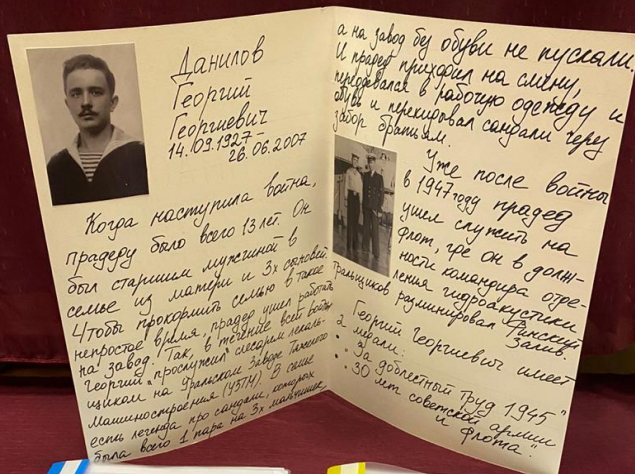 Данилов
Георгий
Георгиевич
14.09.1927 –
26.06.2007
Когда наступила война,
прадеду было всего 13 лет. Он
был старшим мужчиной в
семье из матери и 3х сыновей.
Чтобы прокормить семью в такое
непростое время, прадед ушел работать
на завод. Так, в течение всей войны
Георгий "прослужил" слесарем лекаль-
щиком на Уральском Заводе Тяжелого
Машиностроения (УЗТМ). В семье
есть легенда про сандали, которых
была всего 1 пара на 3х мальчишек
а на завод без обуви не пускали.
И прадед приходил на смену,
переодевался в рабочую одежду и
обувь и перекидывал сандали через
забор братьям.
Уже после войны
в 1947 году прадед
ушел служить на
флот, где он в долж-
ности командира отде-
ления гидроакустики
тральщиков разминировал Финский
Залив.
Георгий Георгиевич имеет
2 медали:
• "За доблестный труд 1945"
• "30 лет советской армии
и флота".